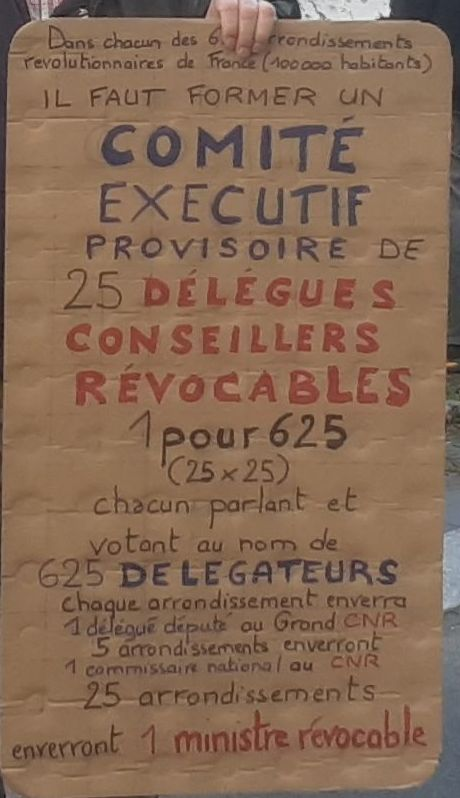 Dans chacun des 6 arrondissements
revolutionnaires de France (100000 habitants)
IL FAUT FORMER UN
COMITÉ
EXECUTIF
PROVISOIRE DE
25 DÉLÉGUES
CONSEILLERS
RÉVOCABLES
1 pour 625
(25 x 25)
chacun parlant et
votant au nom de
625 DELEGATEURS
chaque arrondissement enverra
1 délégué député au Grand CNR
5 arrondissements enverront
1 commissaire national au CNR
25 arrondissements
enverront 1 ministre révocable